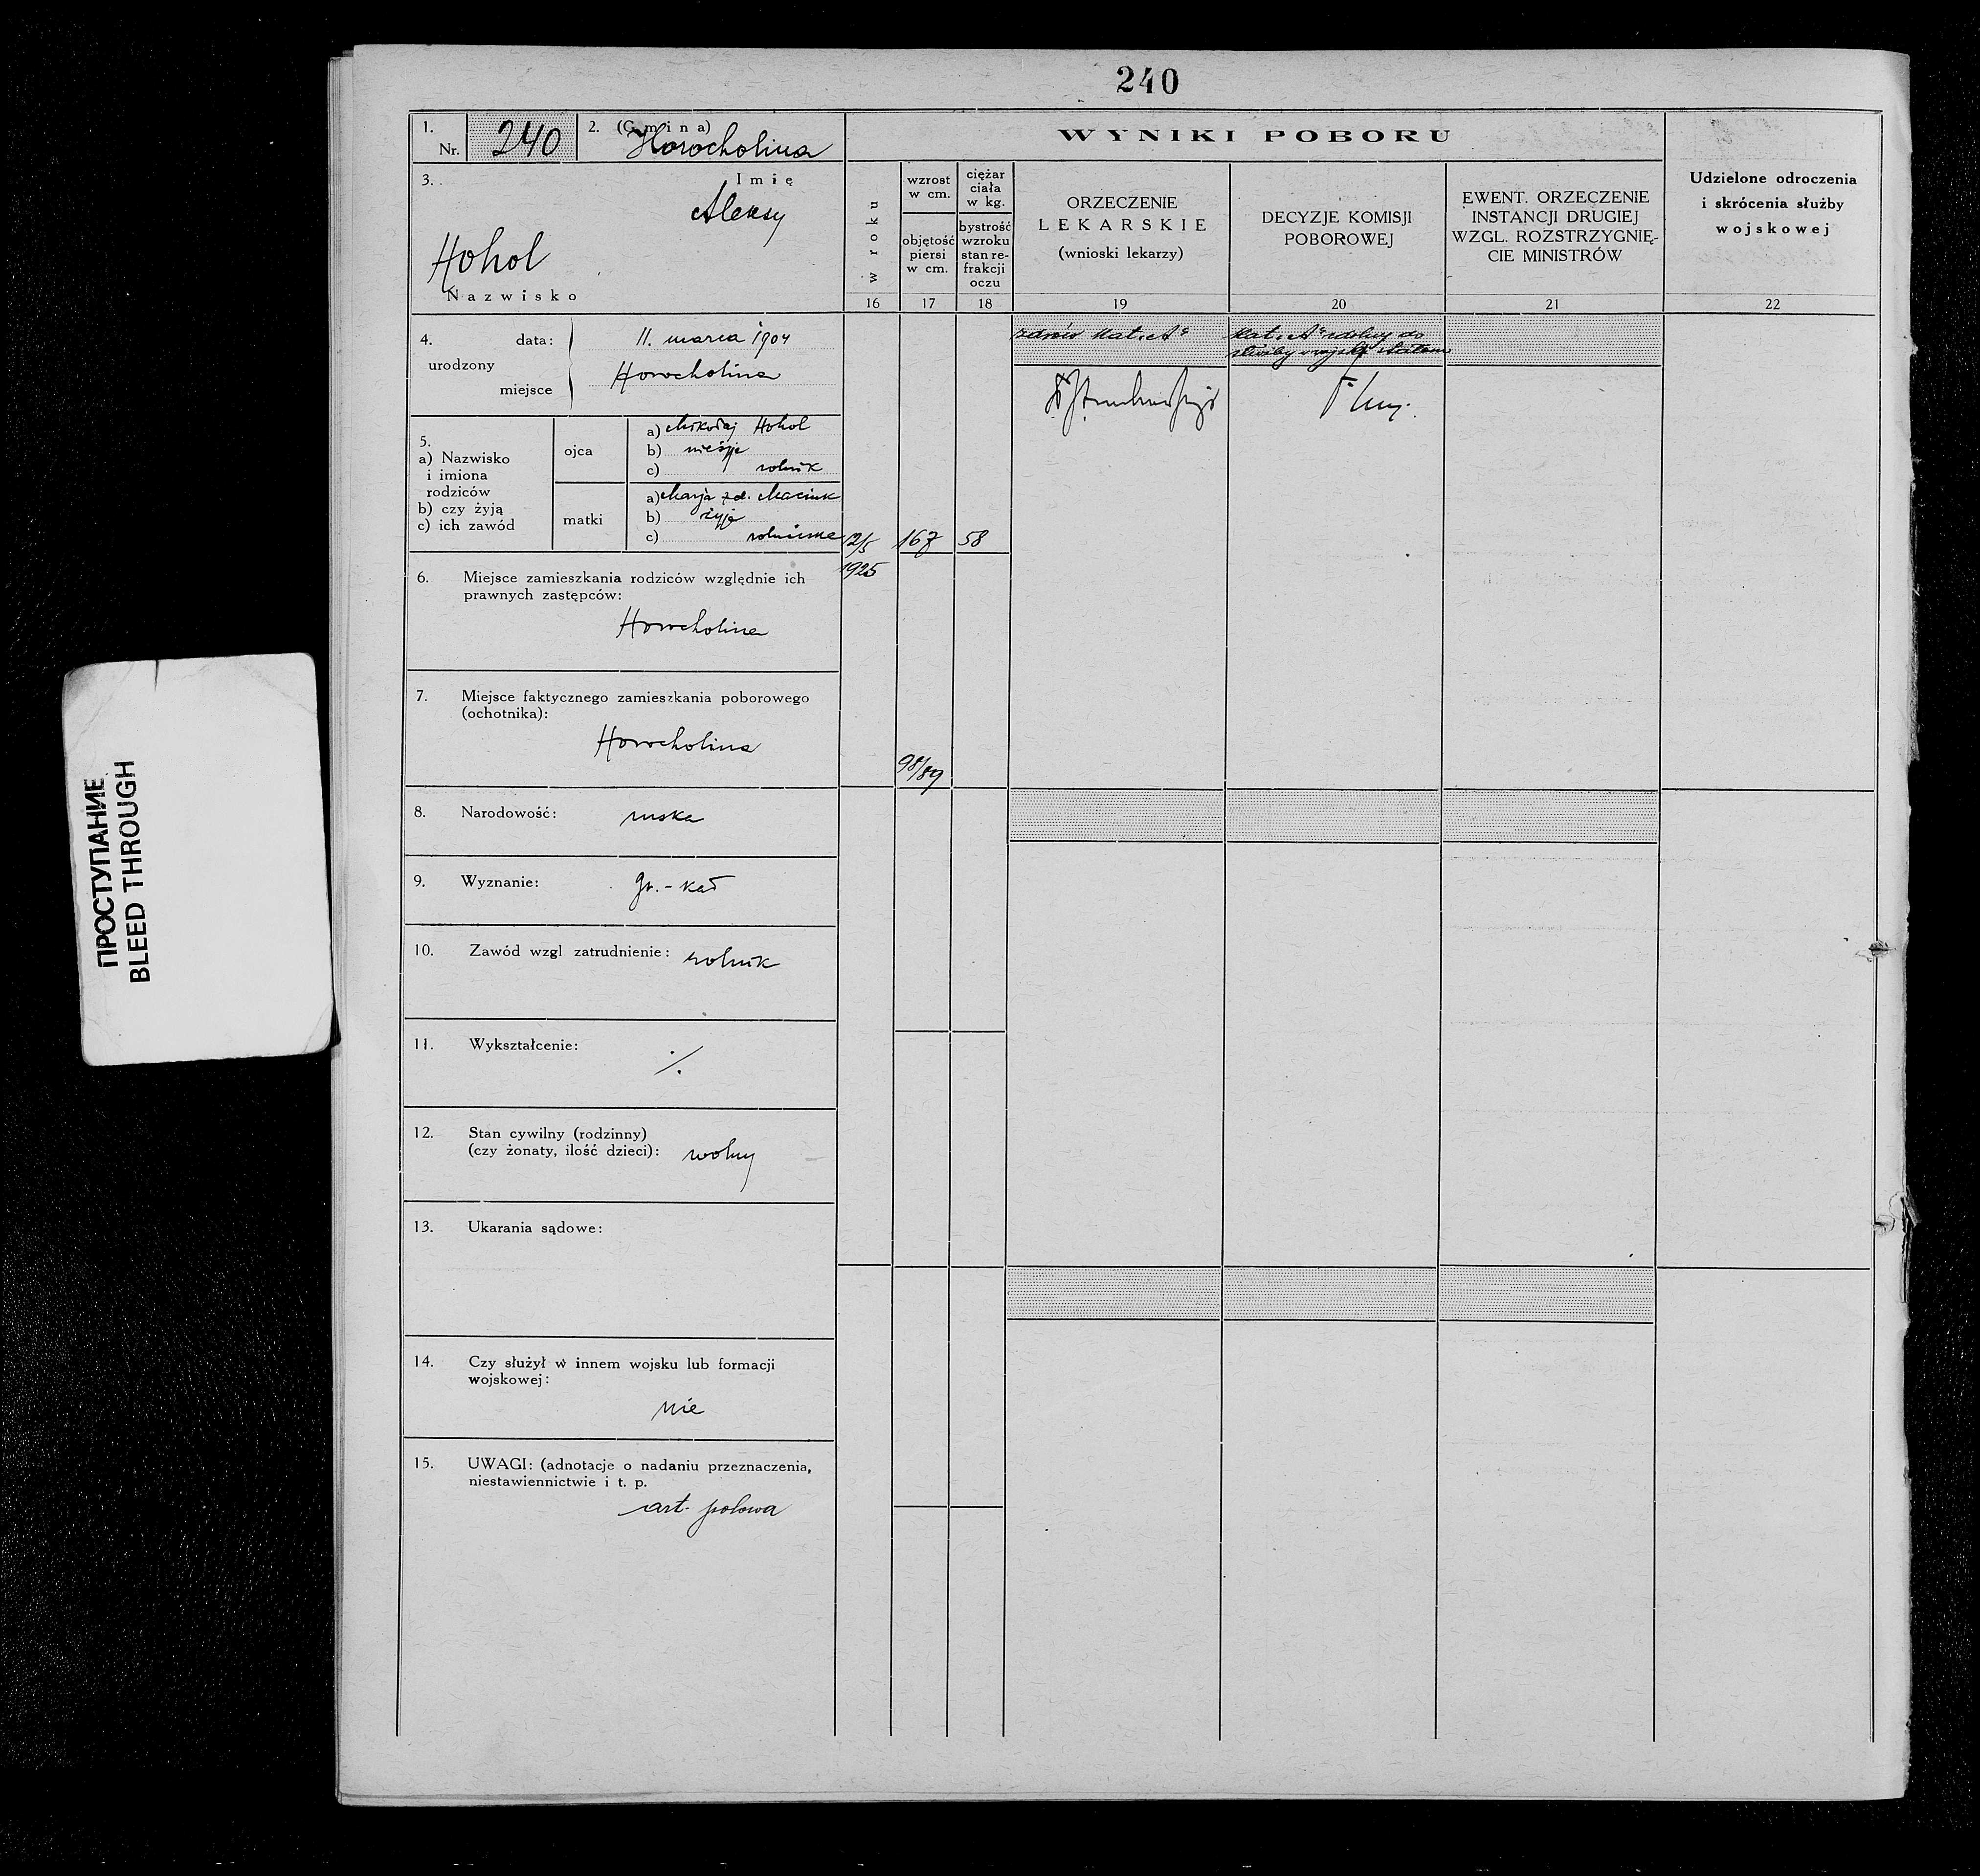 240
1. Nr. 240
2. (Gmina) Horocholina
3. Imię
Aleksy
Hohol
Nazwisko
4. urodzony
data: 11. marca 1904
miejsce Horocholina
5.
a) Nazwisko
i imiona
rodziców
b) czy żyją
c) ich zawód
ojca
a) Mikołaj Hohol
b) nieżyje
c) rolnik
matki
a) Marja zd. Maciuk
b) żyje
c)
6. Miejsce zamieszkania rodziców względnie ich
prawnych zastępców:
Horocholina
7. Miejsce faktycznego zamieszkania poborowego
(ochotnika):
Horocholina
8. Narodowość: ruska
9. Wyznanie: gr.-kat
10. Zawód wzgl zatrudnienie: rolnik
11. Wykształcenie: ·/.
12. Stan cywilny (rodzinny)
(czy żonaty, ilość dzieci): wolny
13. Ukarania sądowe:
14. Czy służył w innem wojsku lub formacji
wojskowej:
nie
15. UWAGI: (adnotacje o nadaniu przeznaczenia,
niestawiennictwie i t. p.
art. polowa
WYNIKI POBORU
w roku
16
wzrost
w cm.
objętość
piersi
w cm.
17
ciężar
ciała
w kg.
bystrość
wzroku
stan re-
frakcji
oczu
18
ORZECZENIE
LEKARSKIE
(wnioski lekarzy)
19
DECYZJE KOMISJI
POBOROWEJ
20
EWENT. ORZECZENIE
INSTANCJI DRUGIEJ
WZGL. ROZSTRZYGNIĘ-
CIE MINISTRÓW
21
Udzielone odroczenia
i skrócenia służby
wojskowej
22
zdrów kat. „A"
kat. „A" zdolny do
służby w wojsku stałem
12/5
1925
167
58
98/89
ПРОСТУПАНИЕ
BLEED THROUGH